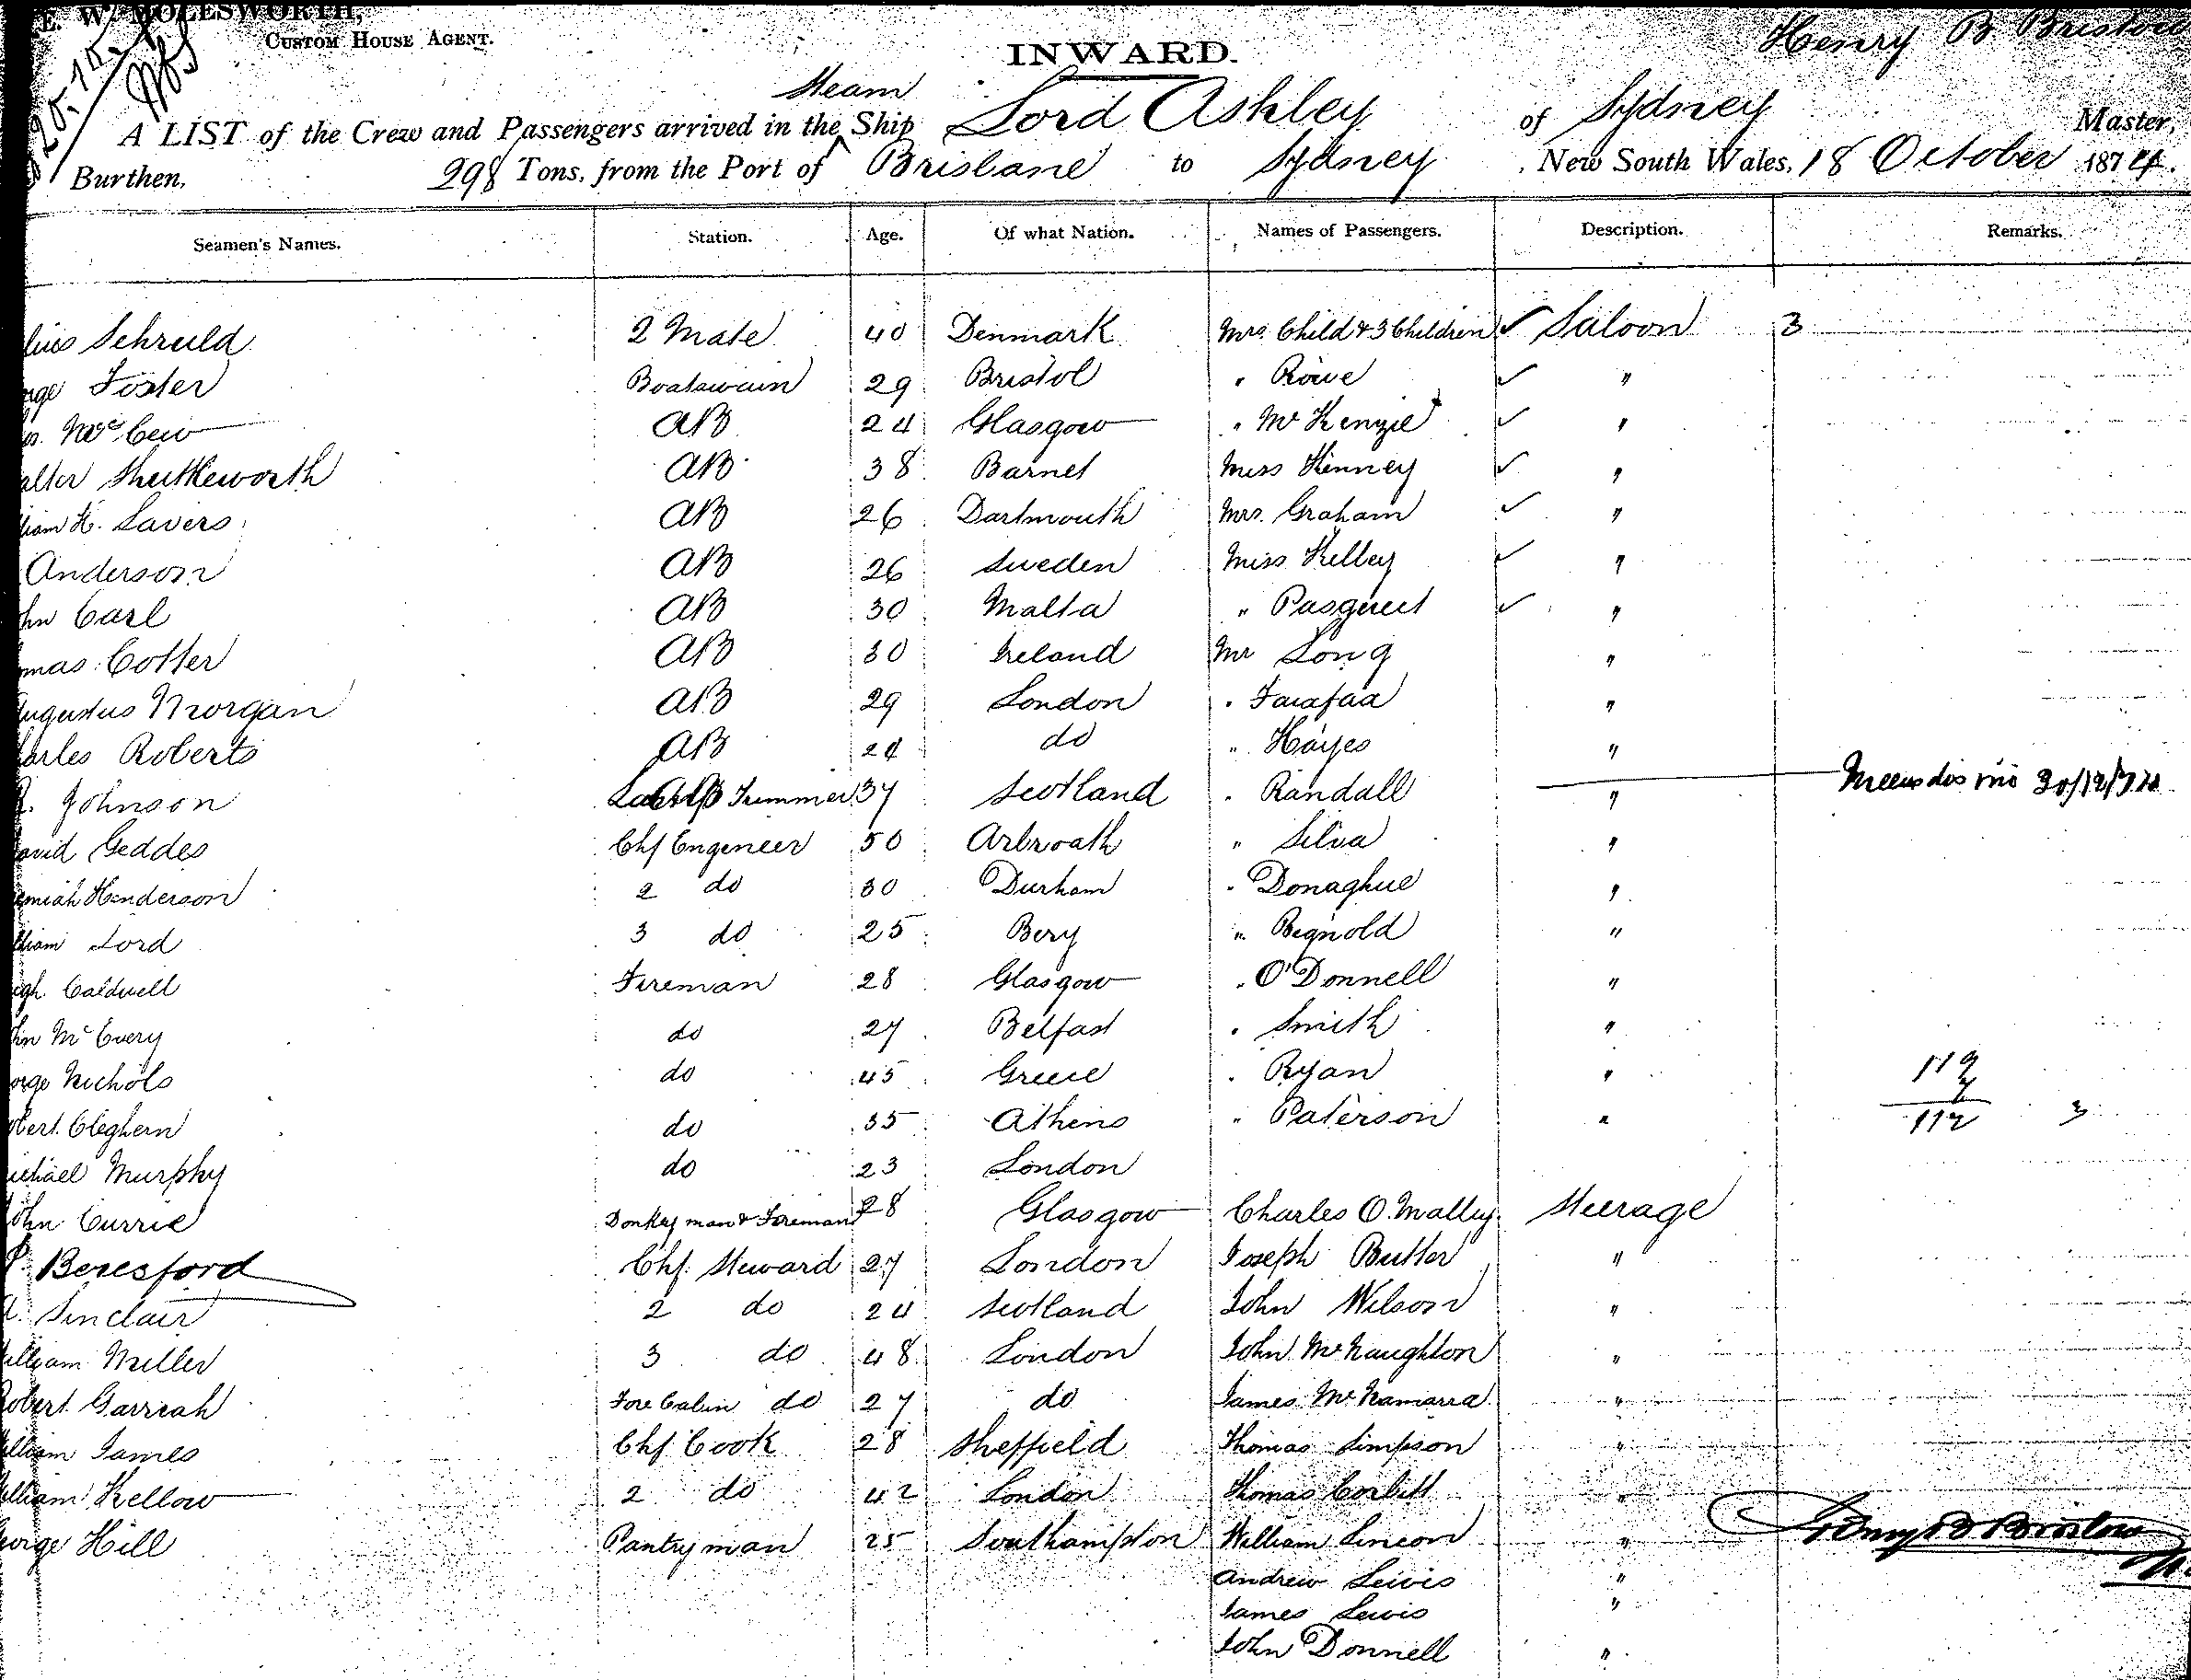 E. W. MOLESWORTH,
CUSTOM HOUSE AGENT.
INWARD.
Henry B Bristow
Steam
A LIST of the Crew and Passengers arrived in the Ship Lord Ashley of Sydney Master,
Burthen, 298 Tons, from the Port of Brisbane to Sydney New South Wales, 18 October 1874.
Seamen's Names. Station. Age. Of what Nation. Names of Passengers. Description. Remarks.
lius Schruld 2 Mate 40 Denmark Mrs. Child & 3 Children ✓ Saloon 3
rge Foster Boatswain 29 Bristol " Rowe ✓ "
Mc Cew AB 24 Glasgow " McKenzie ✓ "
alter Shuttleworth AB 38 Barnet Miss Kinney ✓ "
liam H. Lavers AB 26 Dartmouth Mrs. Graham ✓ "
Anderson AB 26 Sweden Miss Kelley ✓ "
hn Carl AB 30 Malta " ✓ "
mas Cotter AB 30 Ireland Mr Long "
ugustus Morgan AB 29 London " "
arles Roberts AB 24 do " Hayes "
Johnson Trimmer 37 Scotland " Randall " 30/12/74
avid Geddes Chf Engeneer 50 Arbroath " Silva "
emiah Henderson 2 do 30 Durham " Donaghue "
lliam Lord 3 do 25 Bery " Regnold "
ugh Caldwell Fireman 28 Glasgow " O'Donnell "
hn McEvery do 27 Belfast " Smith "
orge Nichols do 45 Greece " Ryan " 119
7
obert Cleghern do 35 Athens " Paterson " 112 3
ichael Murphy do 23 London
John Currie Donkey man & Fireman 28 Glasgow Charles O.Malley Steerage
P. Beresford Chf. Steward 27 London Joseph Butler "
Sinclair 2 do 24 Scotland John Wilson "
illiam Miller 3 do 48 London John McNaughton "
obert Garreah Fore Cabin do 27 do James McNamarra "
illiam James Chf. Cook 28 Sheffield Thomas Simpson "
illiam Kellow 2 do 42 London Thomas Corbitt "
eorge Hill Pantry man 25 Southampton William Lincon " Henry B Bristow
Andrew Lewis "
James Lewis "
John Donnell "